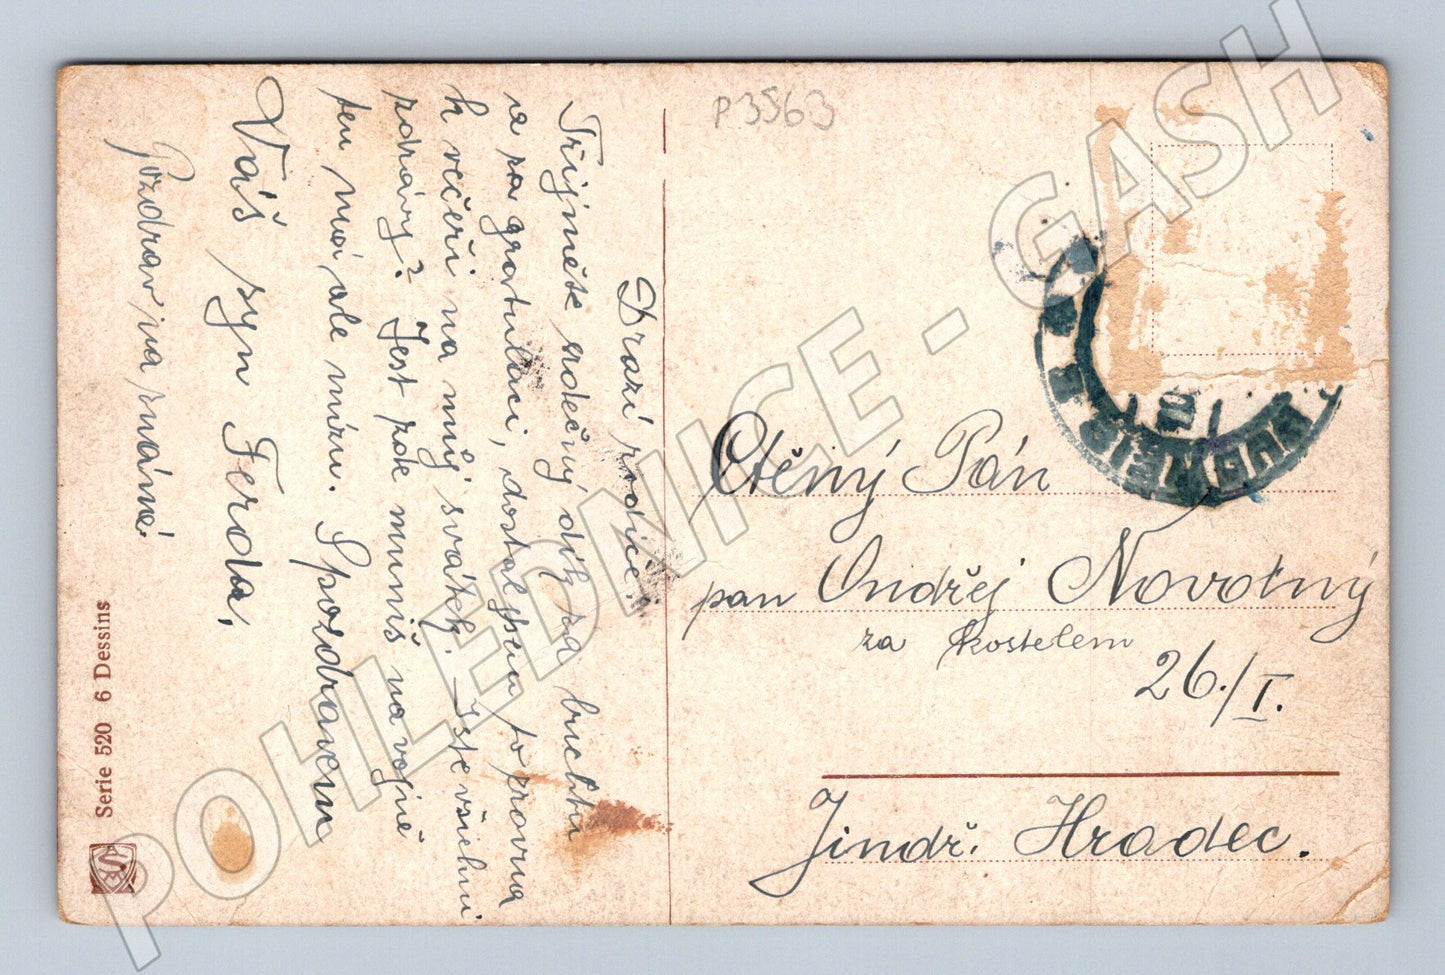 P3563
Drazí rodiče!
Přijměte srdečný dík za buchtu
a za gratulaci, dostal jsem to zrovna
k večeři na můj svátek. Jste všichni
zdrávy? Jest zde mumiš na vojně
ten má ale míru. S pozdravem
Váš syn Ferda,
Pozdrav na známé
Serie 520 6 Dessins
Ctěný Pán
pan Ondřej Novotný
za kostelem
26./I.
Jindř. Hradec.
POHLEDNICE - GASH